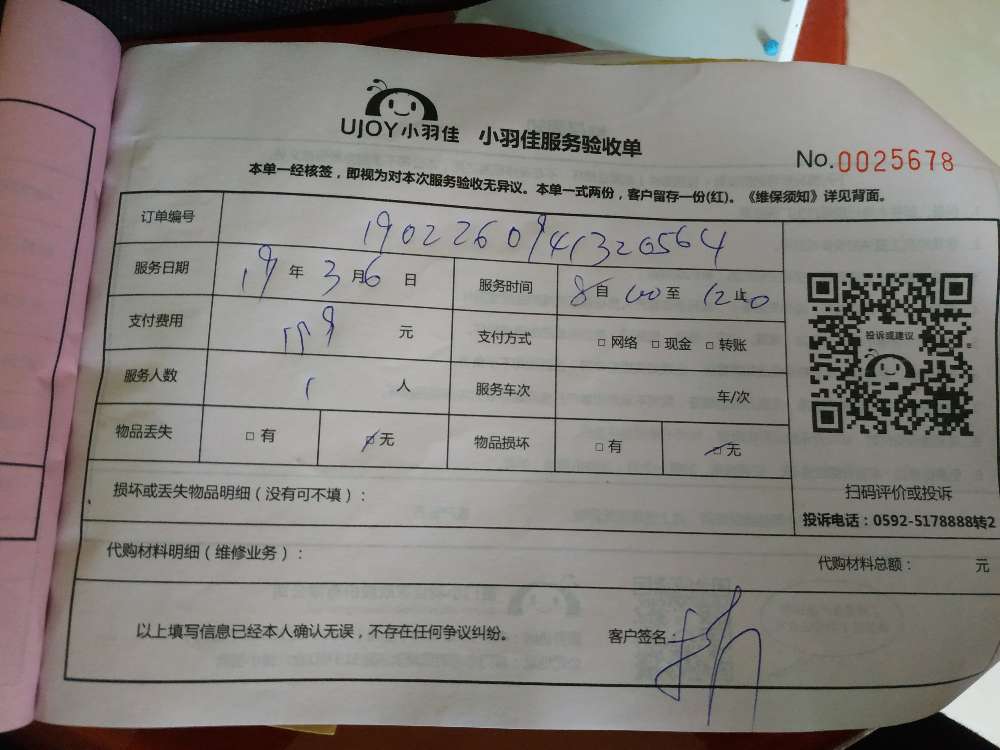 UJOY小羽佳 小羽佳服务验收单
No.0025678
本单一经核签，即视为对本次服务验收无异议。本单一式两份，客户留存一份(红)。《维保须知》详见背面。
订单编号 1902260941320564
服务日期 19 年 3 月 6 日 服务时间 8 自 00 至 12 止 0
支付费用 元 支付方式 □ 网络 □ 现金 □ 转账
服务人数 1 人 服务车次 车/次
物品丢失 □ 有 □ 无 物品损坏 □ 有 □ 无
投诉或建议
扫码评价或投诉
投诉电话：0592-5178888转2
损坏或丢失物品明细（没有可不填）：
代购材料明细（维修业务）： 代购材料总额： 元
以上填写信息已经本人确认无误，不存在任何争议纠纷。 客户签名：